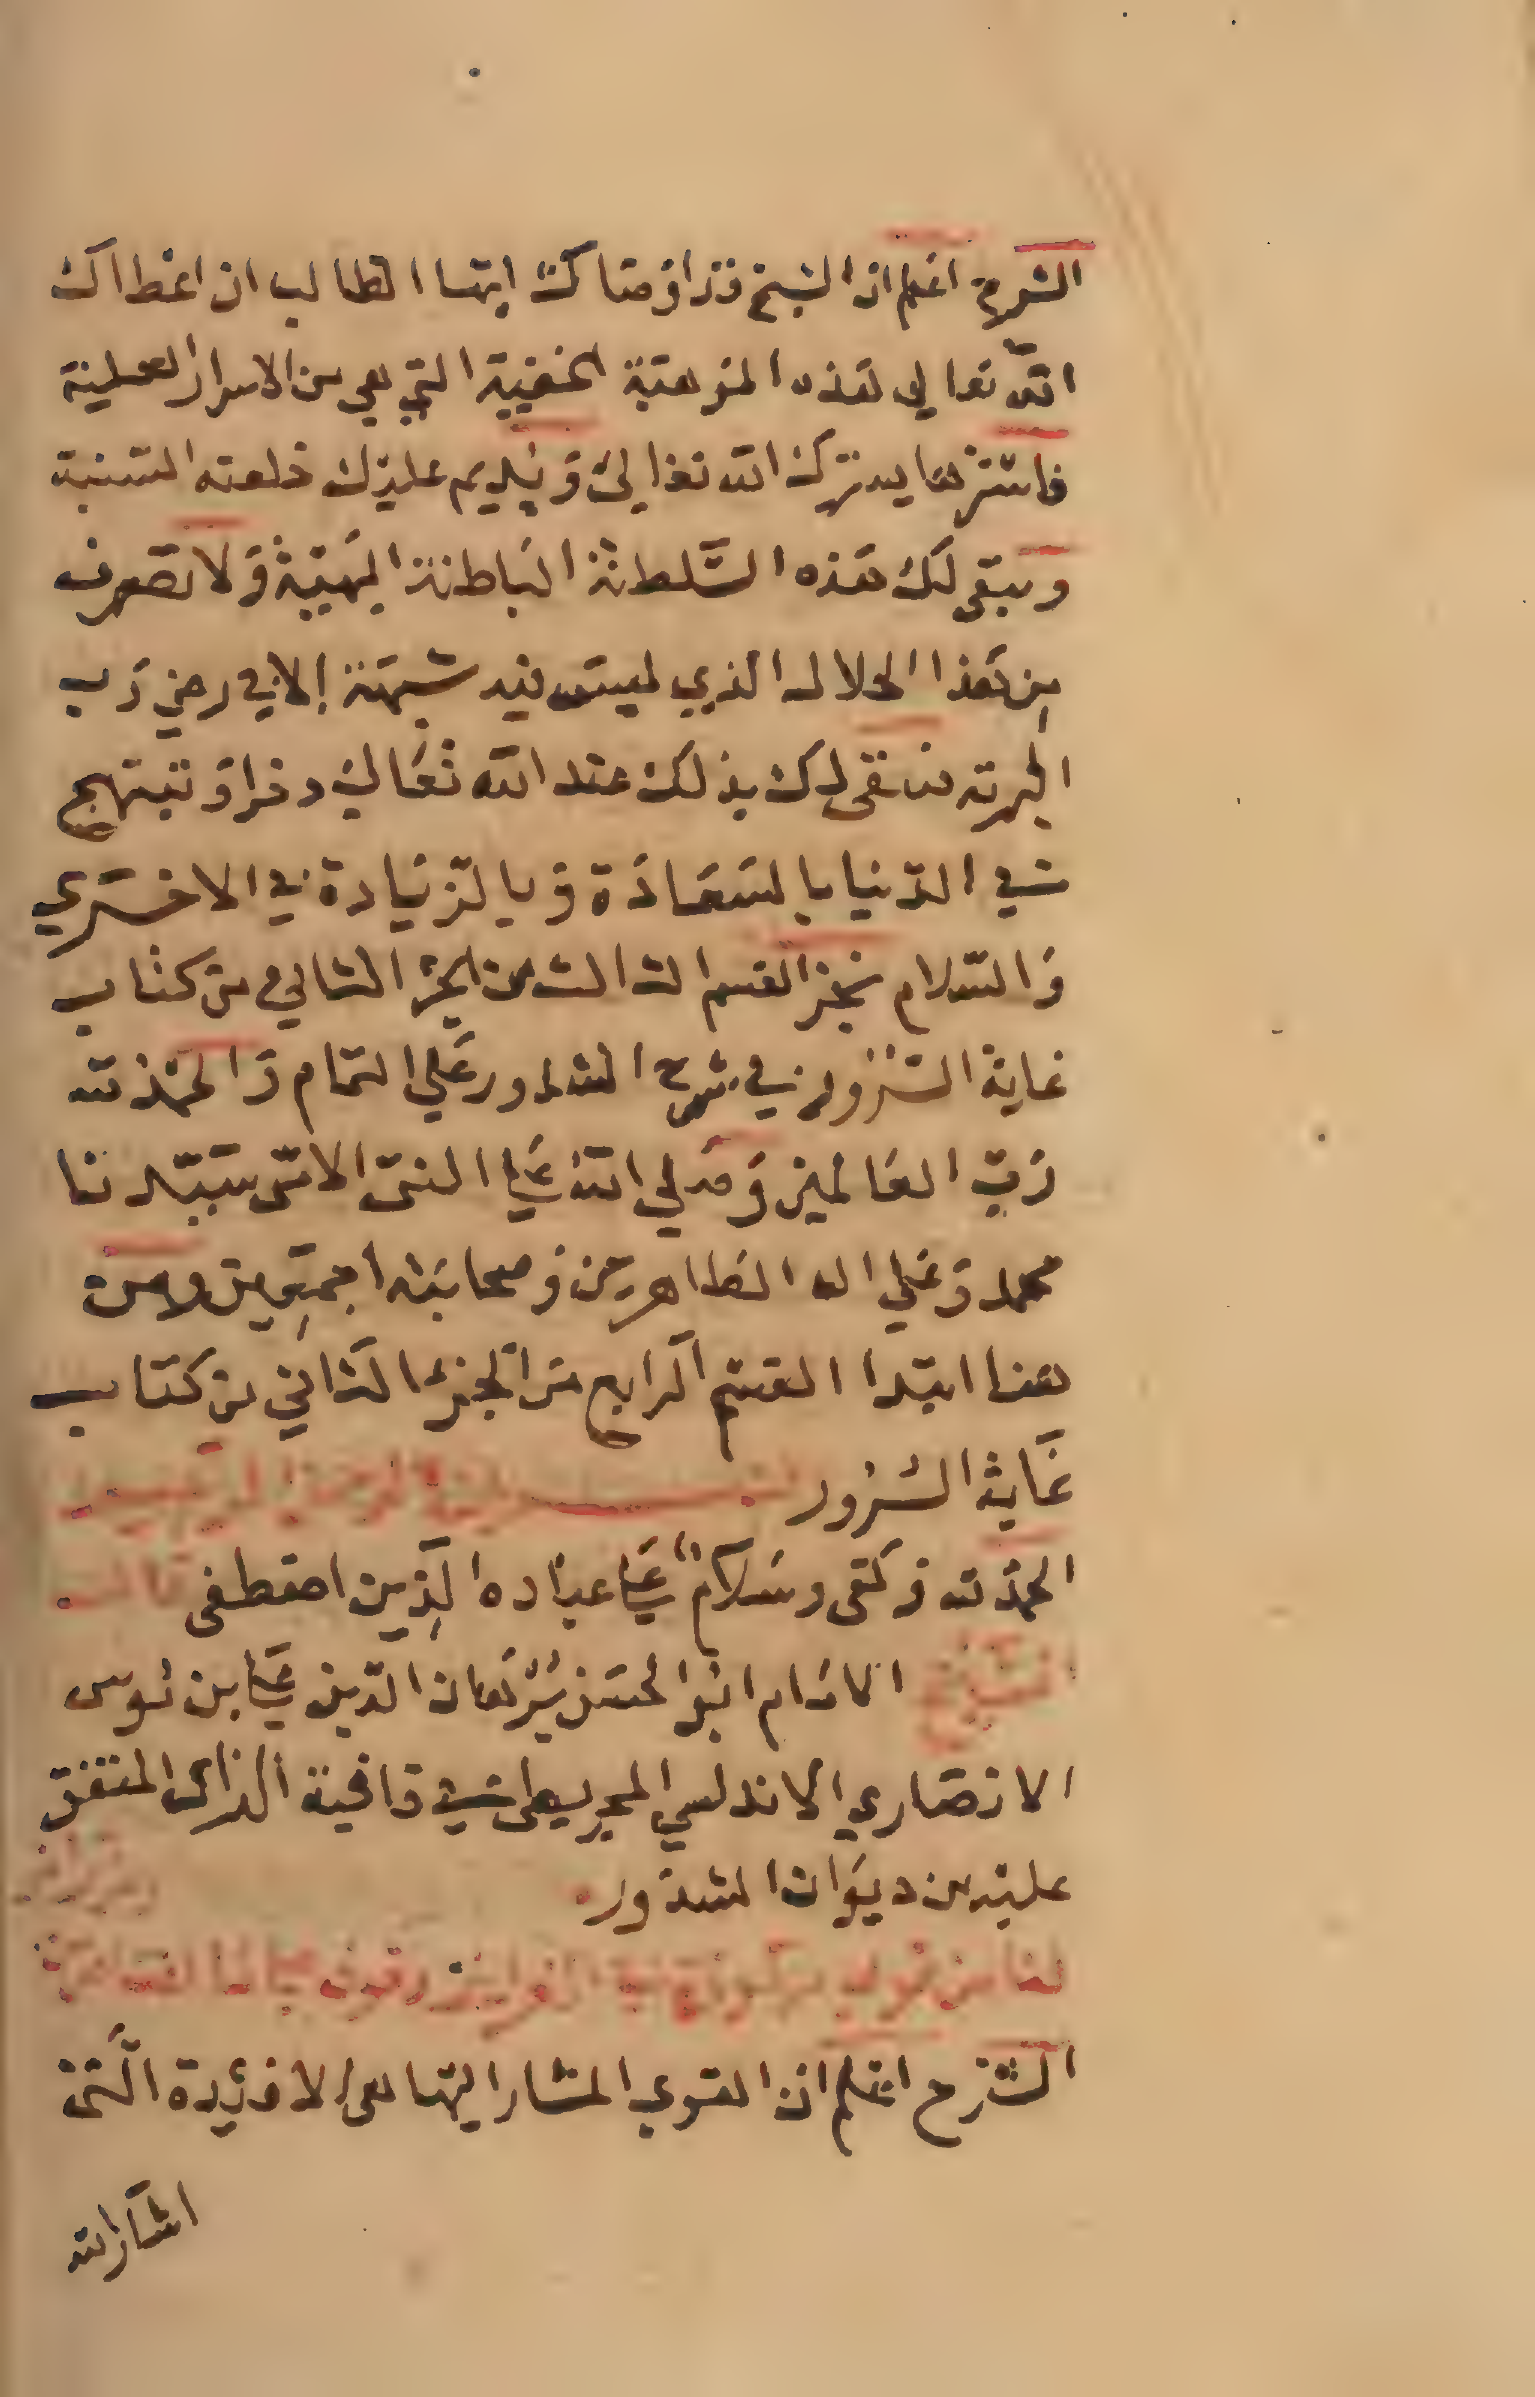 الشرح اعلم ان الشيخ قد اوصاك ايها الطالب ان اعطاك
الله تعالى هذه الموهبة الخفية التي هي من الاسرار العملية
فاسترها يسترك الله تعالى وَيديم عليك خلعته السنية
ويبقى لك هذه السَّلطنة البَاطنة البهيّة وَلا تصرف
من هَذا الحلال الذي ليسَ فيه شبهة إلا في رضى رَب
البرية فتبقى لك بذلك عند الله تعَالى دخرا وَ تبتهج
في الدّنيا بالسَعَادَة وَبالزيَادة في الاخرى
وَالسّلام نجز القسم الثالث من الجزء الثاني من كتاب
غاية السّرور في شرح الشذور عَلي التمام وَالحمد لله
رَبّ العَالمين وَصَلي الله عَلى النبيّ الاميّ سَيّدنا
محمد وَعَلي اله الطاهرين وَصحابته اجمَعِين ومن
هنا ابتدا القسم الرابع من الجزء الثاني من كتاب
غَاية السُرُور بسم الله الرحمن الرحيم
الحمد لله وَكفى وسَلامٌ عَلى عباده الذِين اصطفى قال
الشيخ الامَام ابو الحسَن بُرهَان الدّين عَلى بن موسى
الانصَاري الاندلسي في قافية الذال المتفق
عليه من ديوَان الشذور
لنا من
الشرح اعلم ان القوي المشار اليهَا هي الافئدة الَّتي
اشَاراته